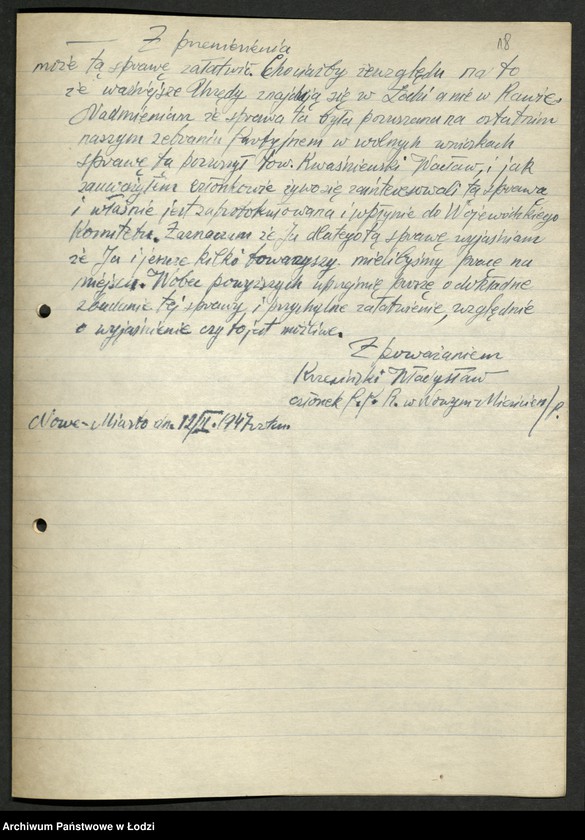 18
Z przeniesienia
może tą sprawę załatwić. Chociażby ze względu na to
że ważniejsze Urzędy znajdują się w Łodzi a nie w Rawie.
Nadmieniam że sprawa ta była poruszana na ostatnim
naszym zebraniu partyjnem w wolnych wnioskach
sprawę tą poruszył tow. Kwaśniewski Wacław, i jak
zauważyłem członkowie żywo się zainteresowali tą sprawą
i właśnie jest zaprotokułowana i wpłynie do Wojewódzkiego
Komitetu. Zaznaczam że Ja dlatego tą sprawę wyjaśniam
że Ja i jeszcze kilko towarzyszy mielibyśmy pracę na
miejscu. Wobec powyższych uprzejmię proszę o dokładne
zbadanie tej sprawy i przychylne załatwienie, względnie
o wyjaśnienie czy to jest możliwe.
Z poważaniem
Władysław
członek P.P.R. w Nowym-Mieście n/P.
Nowe-Miasto dn. 12/II. 1947
Archiwum Państwowe w Łodzi